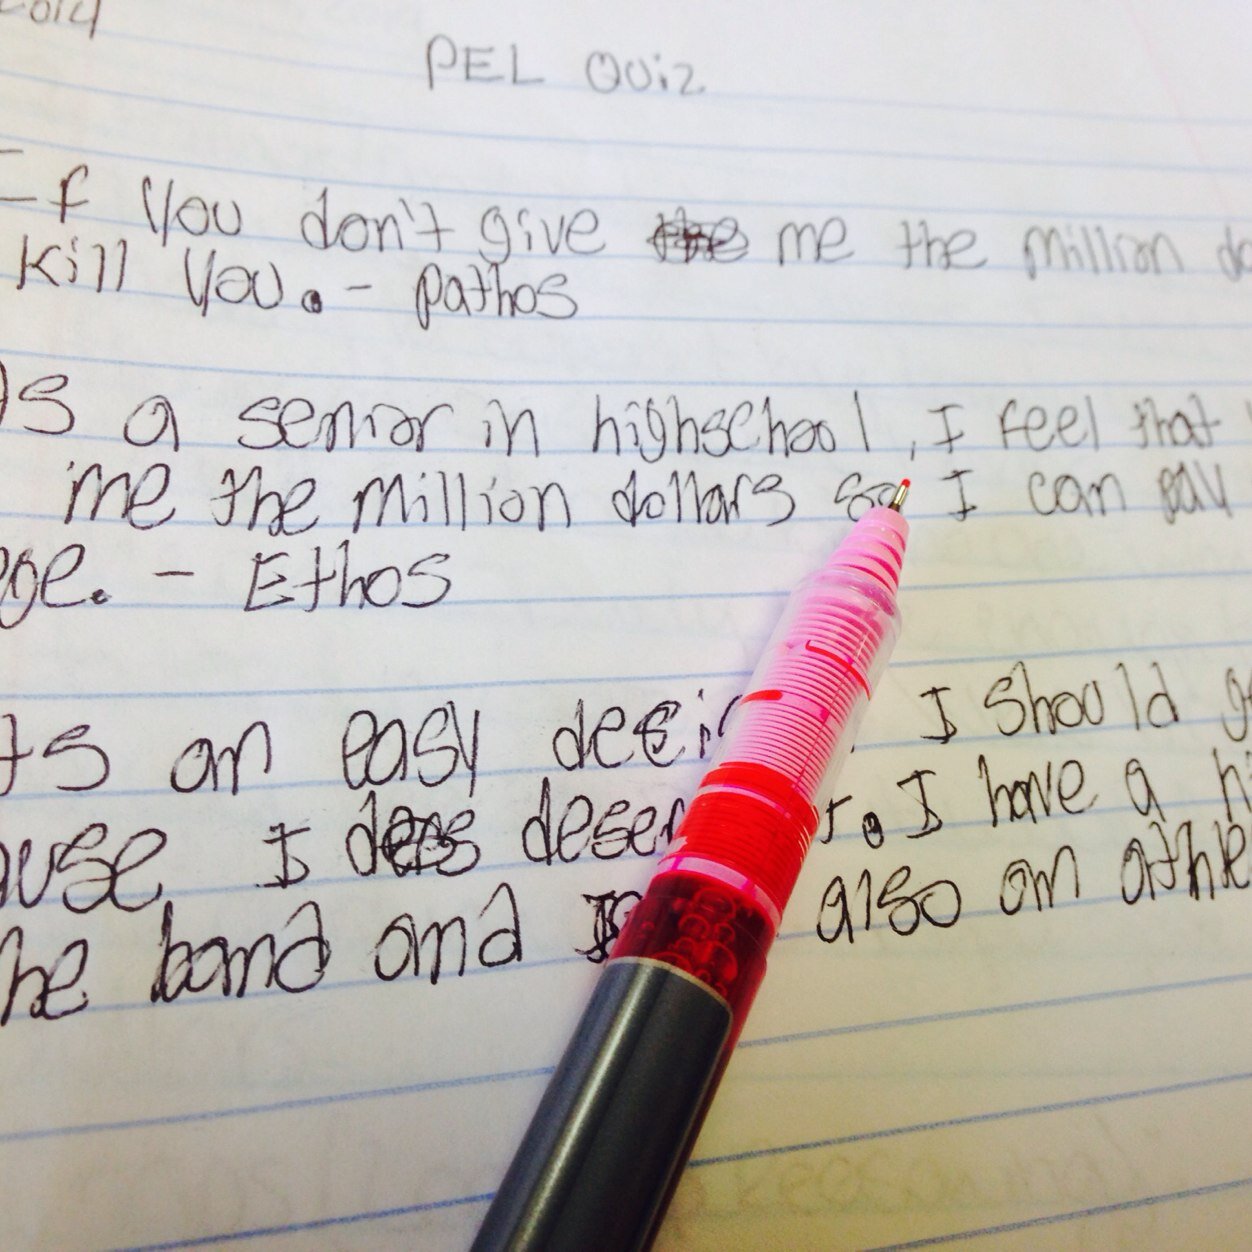 2014
PEL QUiz
If you don't give the me the million do
kill you. - pathos
As a senior in highschool, I feel that
me the million dollars so I can pay
ege. - Ethos
ts an easy decis I should g
ause I des deser r. I have a hi
he band and also an athle